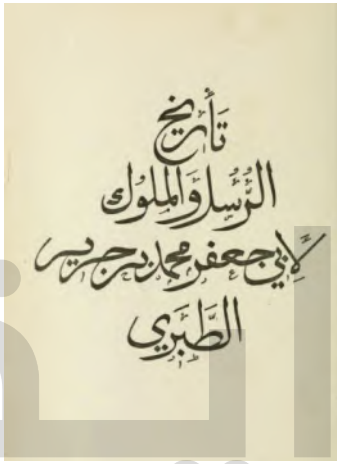 تَأْرِيخ
الرُّسُل وَالمُلُوك
لِأَبِي جَعفَر مُحَمَّد بن جَرِير
الطَّبَرِي